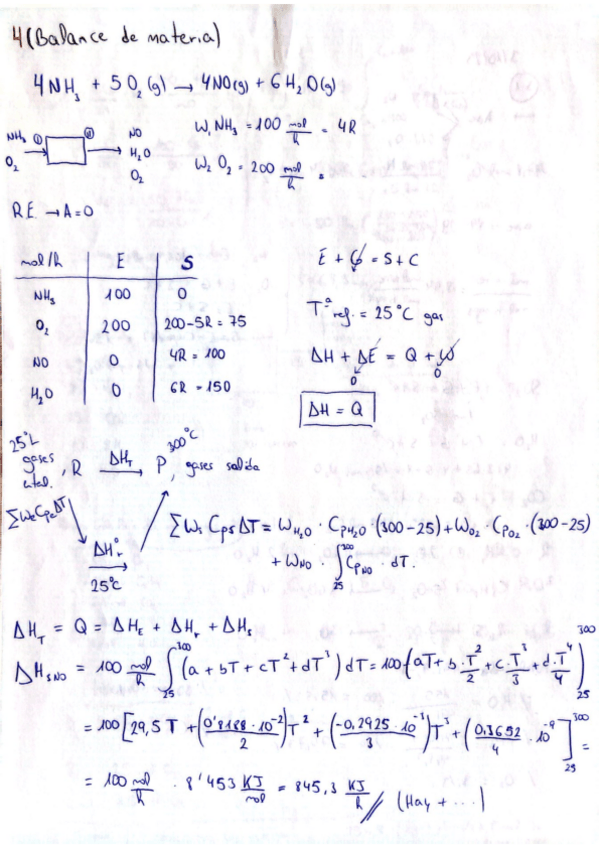 4 (Balance de materia)
4NH₃ + 5O₂(g) → 4NO(g) + 6H₂O(g)
NH₃ ① ② NO
O₂ H₂O
O₂
W₁ NH₃ = 100 mol/h = 4R
W₂ O₂ = 200 mol/h .
RE → A = 0
mol/h | E | S
NH₃ | 100 | 0
O₂ | 200 | 200-5R = 75
NO | 0 | 4R = 100
H₂O | 0 | 6R = 150
E + G = S + C
Tª ref. = 25°C gas
ΔH + ΔE = Q + W
0 0
ΔH = Q
25°C 300°C
gases , R ΔH_T → P, gases salida
ΣWe Cpe ΔT
ΔH°r
25°C
ΣWs Cps ΔT = W_H₂O · Cp_H₂O (300-25) + W_O₂ · Cp_O₂ · (300-25)
+ W_NO · ∫₂₅³⁰⁰ Cp_NO · dT.
ΔH_T = Q = ΔH_E + ΔH_r + ΔH_S
ΔH_S NO = 100 mol/h ∫₂₅³⁰⁰ (a + bT + cT² + dT³) dT = 100 (aT + b · T²/2 + c · T³/3 + d · T⁴/4)₂₅³⁰⁰
= 100 [29,5 T + (0'8188 · 10⁻²/2) T² + (-0,2925 · 10⁻⁵/3) T³ + (0,3652/4 · 10⁻⁹ ]₂₅³⁰⁰ =
= 100 mol/h · 8'453 KJ/mol = 845,3 KJ/h // (Hay + ...)